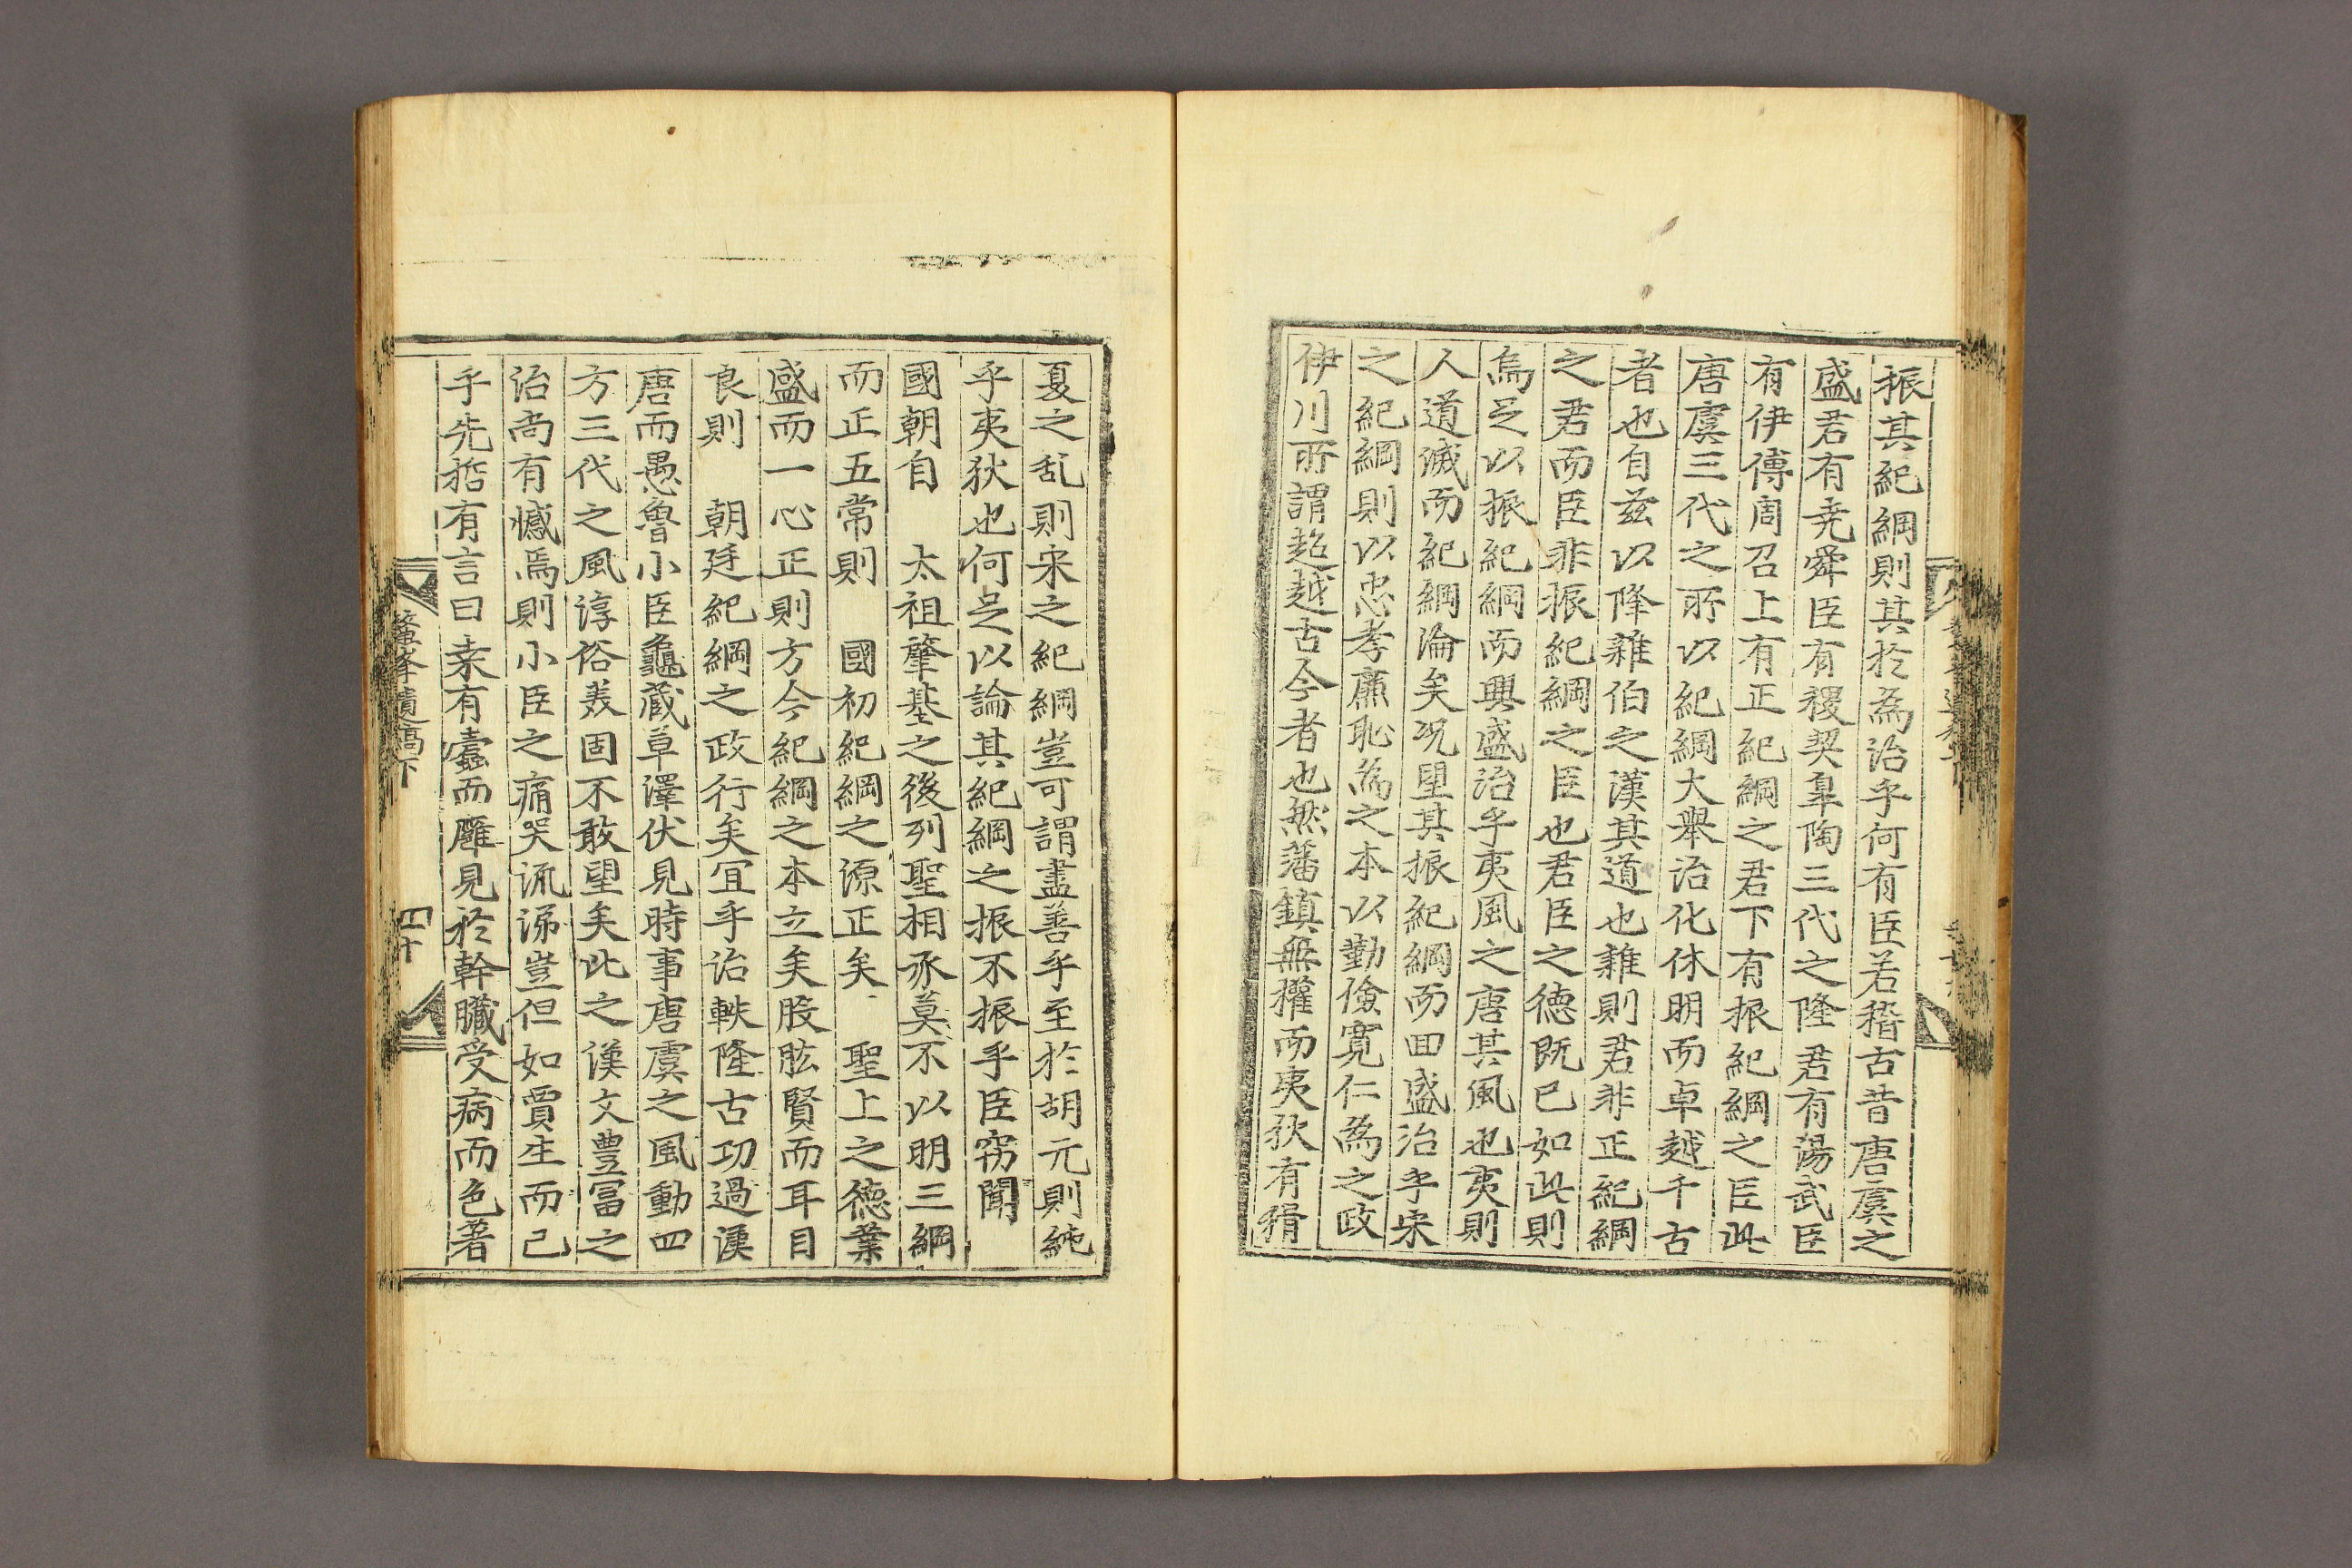 振其紀綱則其於爲治乎何有臣若稽古昔唐虞之
盛君有堯舜臣有稷契皐陶三代之隆君有湯武臣
有伊傅周召上有正紀綱之君下有振紀綱之臣此
唐虞三代之所以紀綱大舉治化休明而卓越千古
者也自玆以降雜伯之漢其道也雜則君非正紀綱
之君而臣非振紀綱之臣也君臣之德旣已如此則
焉足以振紀綱而興盛治乎夷風之唐其風也夷則
人道滅而紀綱淪矣况望其振紀綱而回盛治乎宋
之紀綱則以忠孝廉恥爲之本以勤儉寬仁爲之政
伊川所謂超越古今者也然藩鎭無權而夷狄有猾
夏之乱則宋之紀綱豈可謂盡善乎至於胡元則純
乎夷狄也何足以論其紀綱之振不振乎臣窃聞
國朝自 太祖肇基之後列聖相承莫不以明三綱
而正五常則 國初紀綱之源正矣 聖上之德業
盛而一心正則方今紀綱之本立矣股肱賢而耳目
良則 朝廷紀綱之政行矣宜乎治軼隆古功過漢
唐而愚魯小臣龜藏草澤伏見時事唐虞之風動四
方三代之風淳俗美固不敢望矣此之漢文豊富之
治尚有憾焉則小臣之痛哭流涕豈但如賈生而已
乎先哲有言曰桒有蠹而雕見於幹臟受病而色著
鰲峯遺稿下
四十